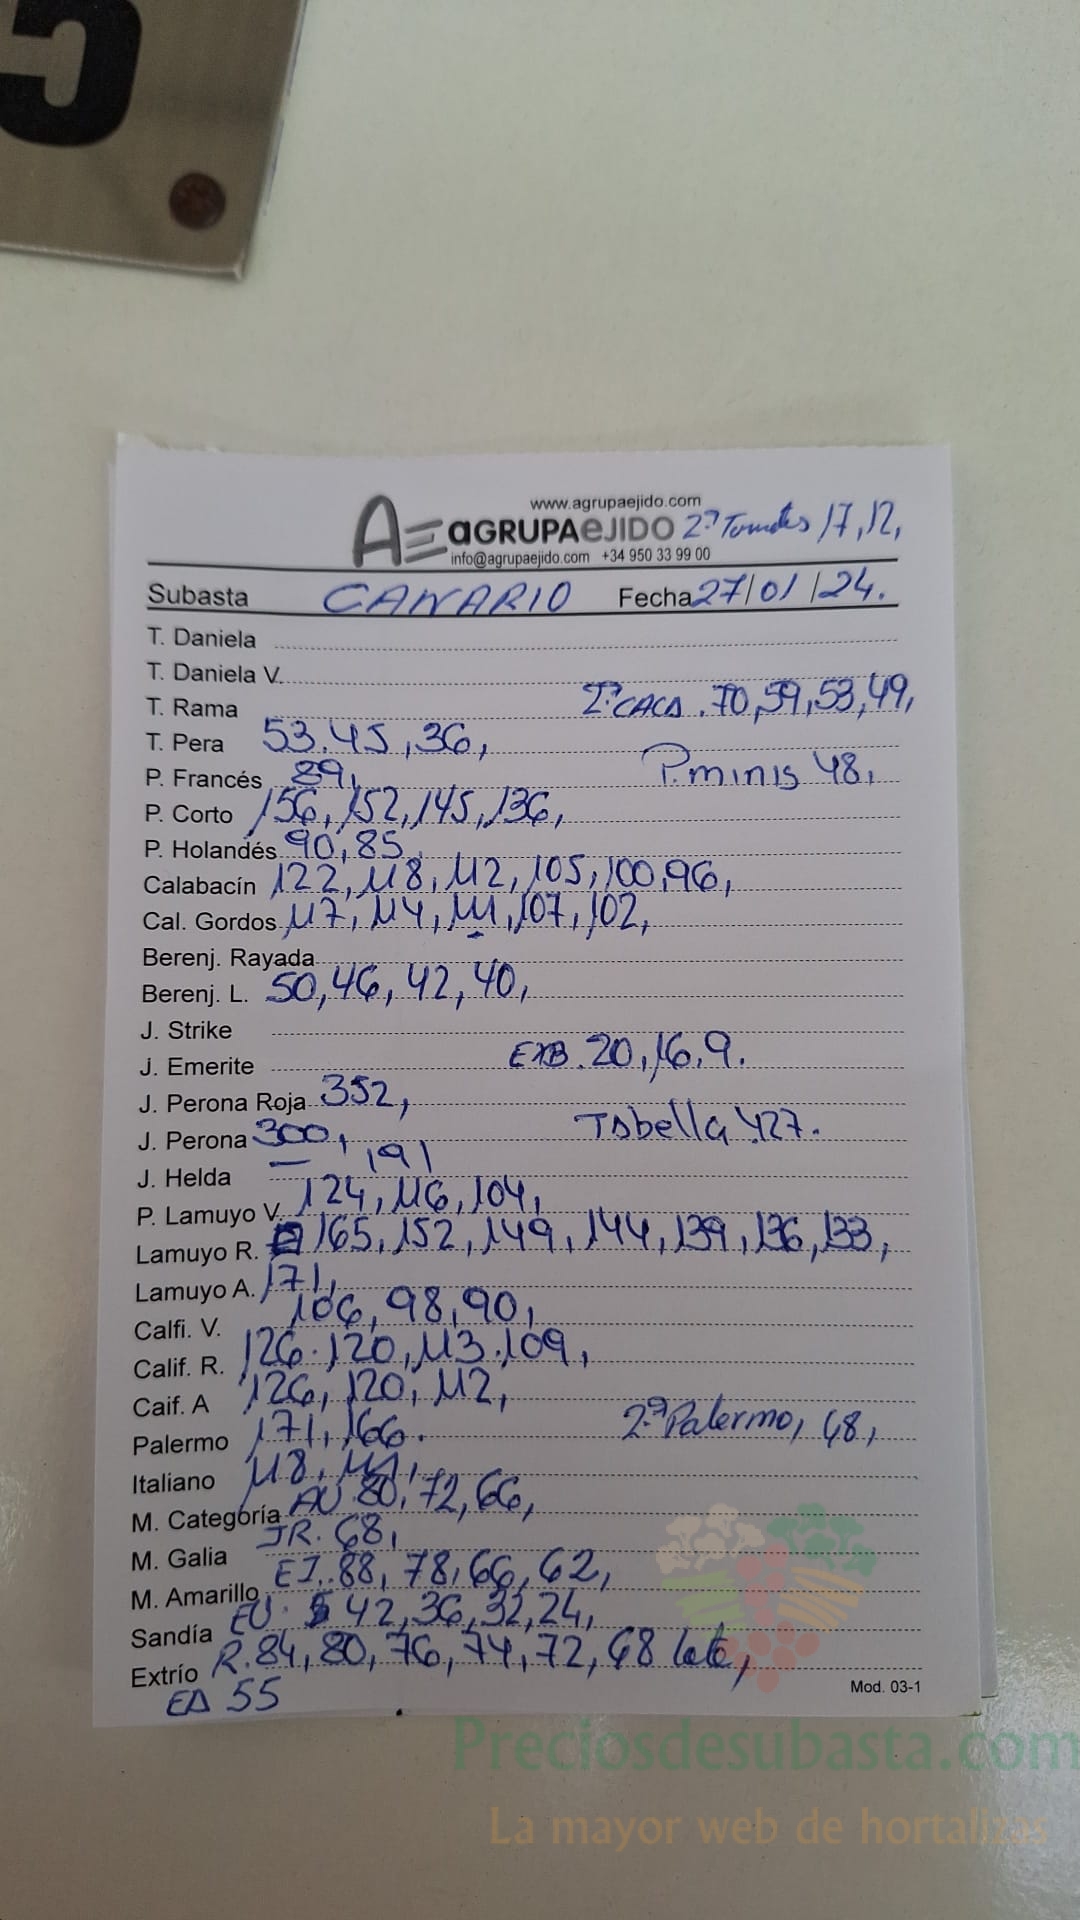 5
www.agrupaejido.com
AE aGRUPAeJIDO 2ª Tomates 17, 12,
info@agrupaejido.com +34 950 33 99 00
Subasta CANARIO Fecha 27/01/24.
T. Daniela
T. Daniela V.
T. Rama 2ª CACA. 70, 59, 53, 49,
T. Pera 53. 45, 36,
P. Francés 89, P. minis 48,
P. Corto 156, 152, 145, 136,
P. Holandés 90, 85,
Calabacín 122, 118, 112, 105, 100, 96,
Cal. Gordos 117, 114, 111, 107, 102,
Berenj. Rayada
Berenj. L. 50, 46, 42, 40,
J. Strike
J. Emerite EXB. 20, 16, 9.
J. Perona Roja 352,
J. Perona 300, Tabella 427.
J. Helda — 191
P. Lamuyo V. 124, 116, 104,
Lamuyo R. 165, 152, 149, 144, 139, 136, 133,
Lamuyo A. 171,
Calfi. V. 106, 98, 90,
Calif. R. 126. 120, 113. 109,
Caif. A 126, 120, 112,
Palermo 171, 166. 2ª Palermo, 68,
Italiano 118, 111,
M. Categoría AU. 80, 72, 66,
M. Galia JR. 68,
M. Amarillo EJ. 88, 78, 66, 62,
Sandía EU. 42, 36, 32, 24,
Extrío R. 84, 80, 76, 74, 72, 68 lote,
EA 55
Mod. 03-1
Preciosdesubasta.com
La mayor web de hortalizas